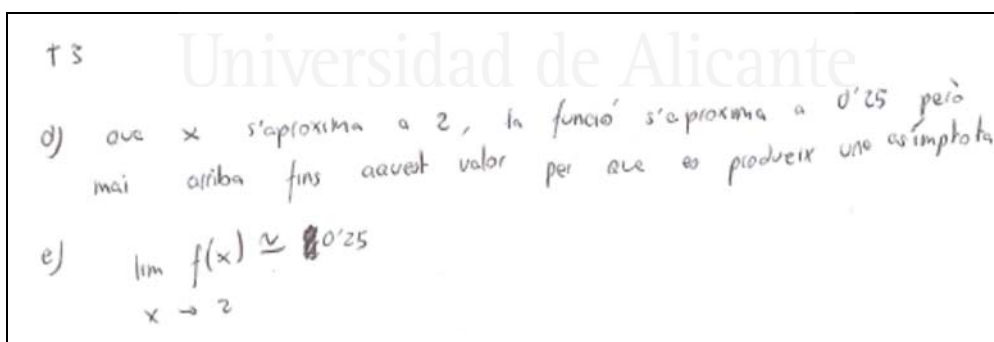 Universidad de Alicante
T 3
d) que x s'aproxima a 2, la funció s'aproxima a 0'25 però
mai arriba fins aquest valor per que es produeix una asímptota
e) lim f(x) ≃ 0'25
x → 2